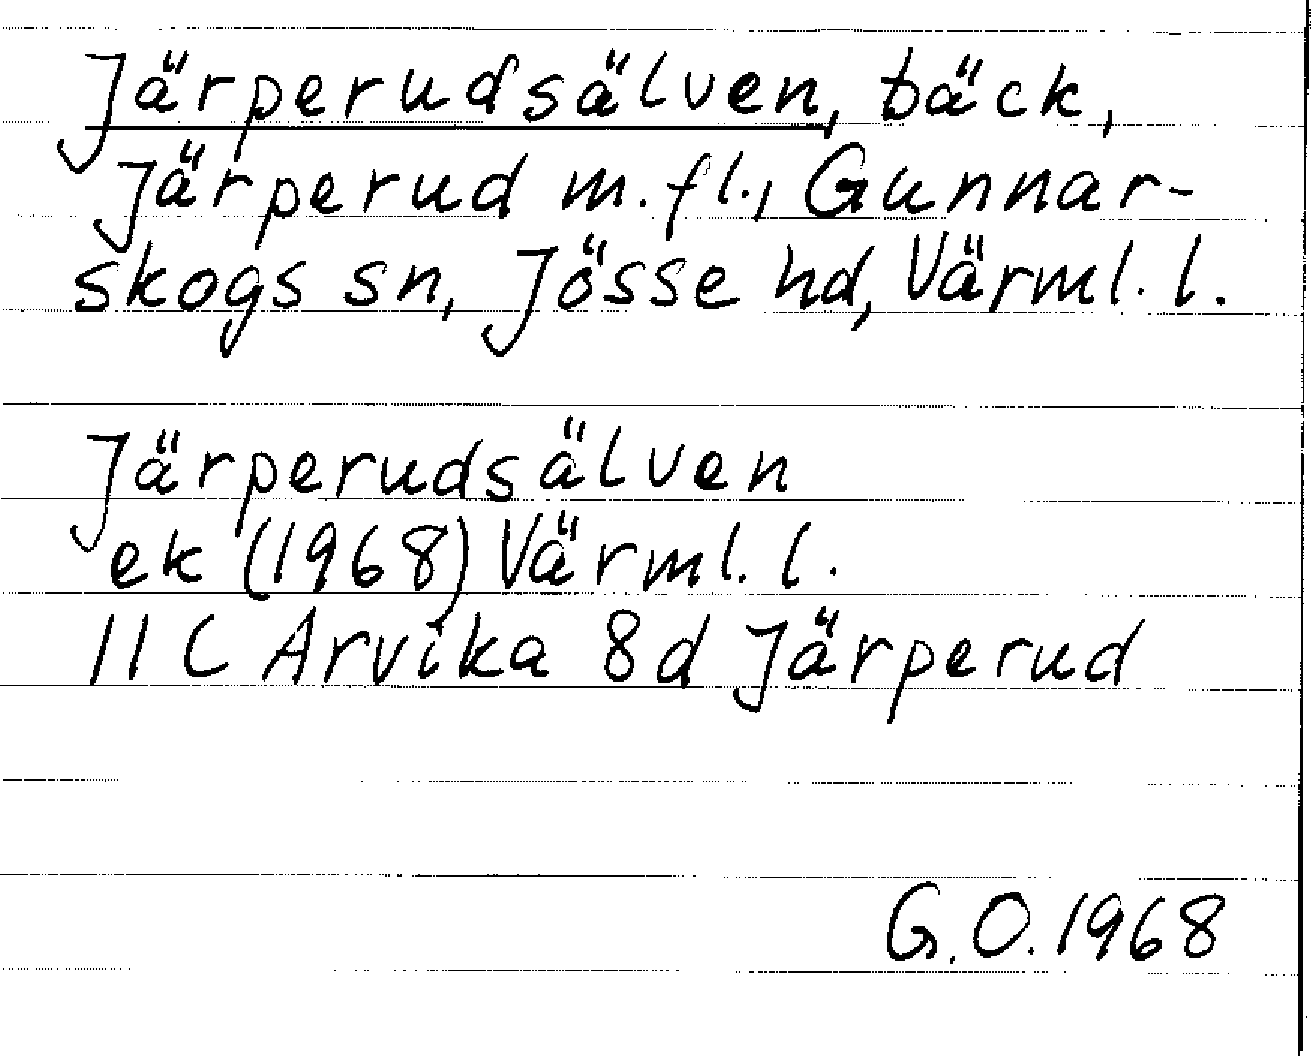 Järperudsälven, bäck,
Järperud m.fl., Gunnar-
skogs sn, Jösse hd, Värml. l.
Järperudsälven
ek (1968) Värml. l.
11 C Arvika 8d Järperud
G.O. 1968